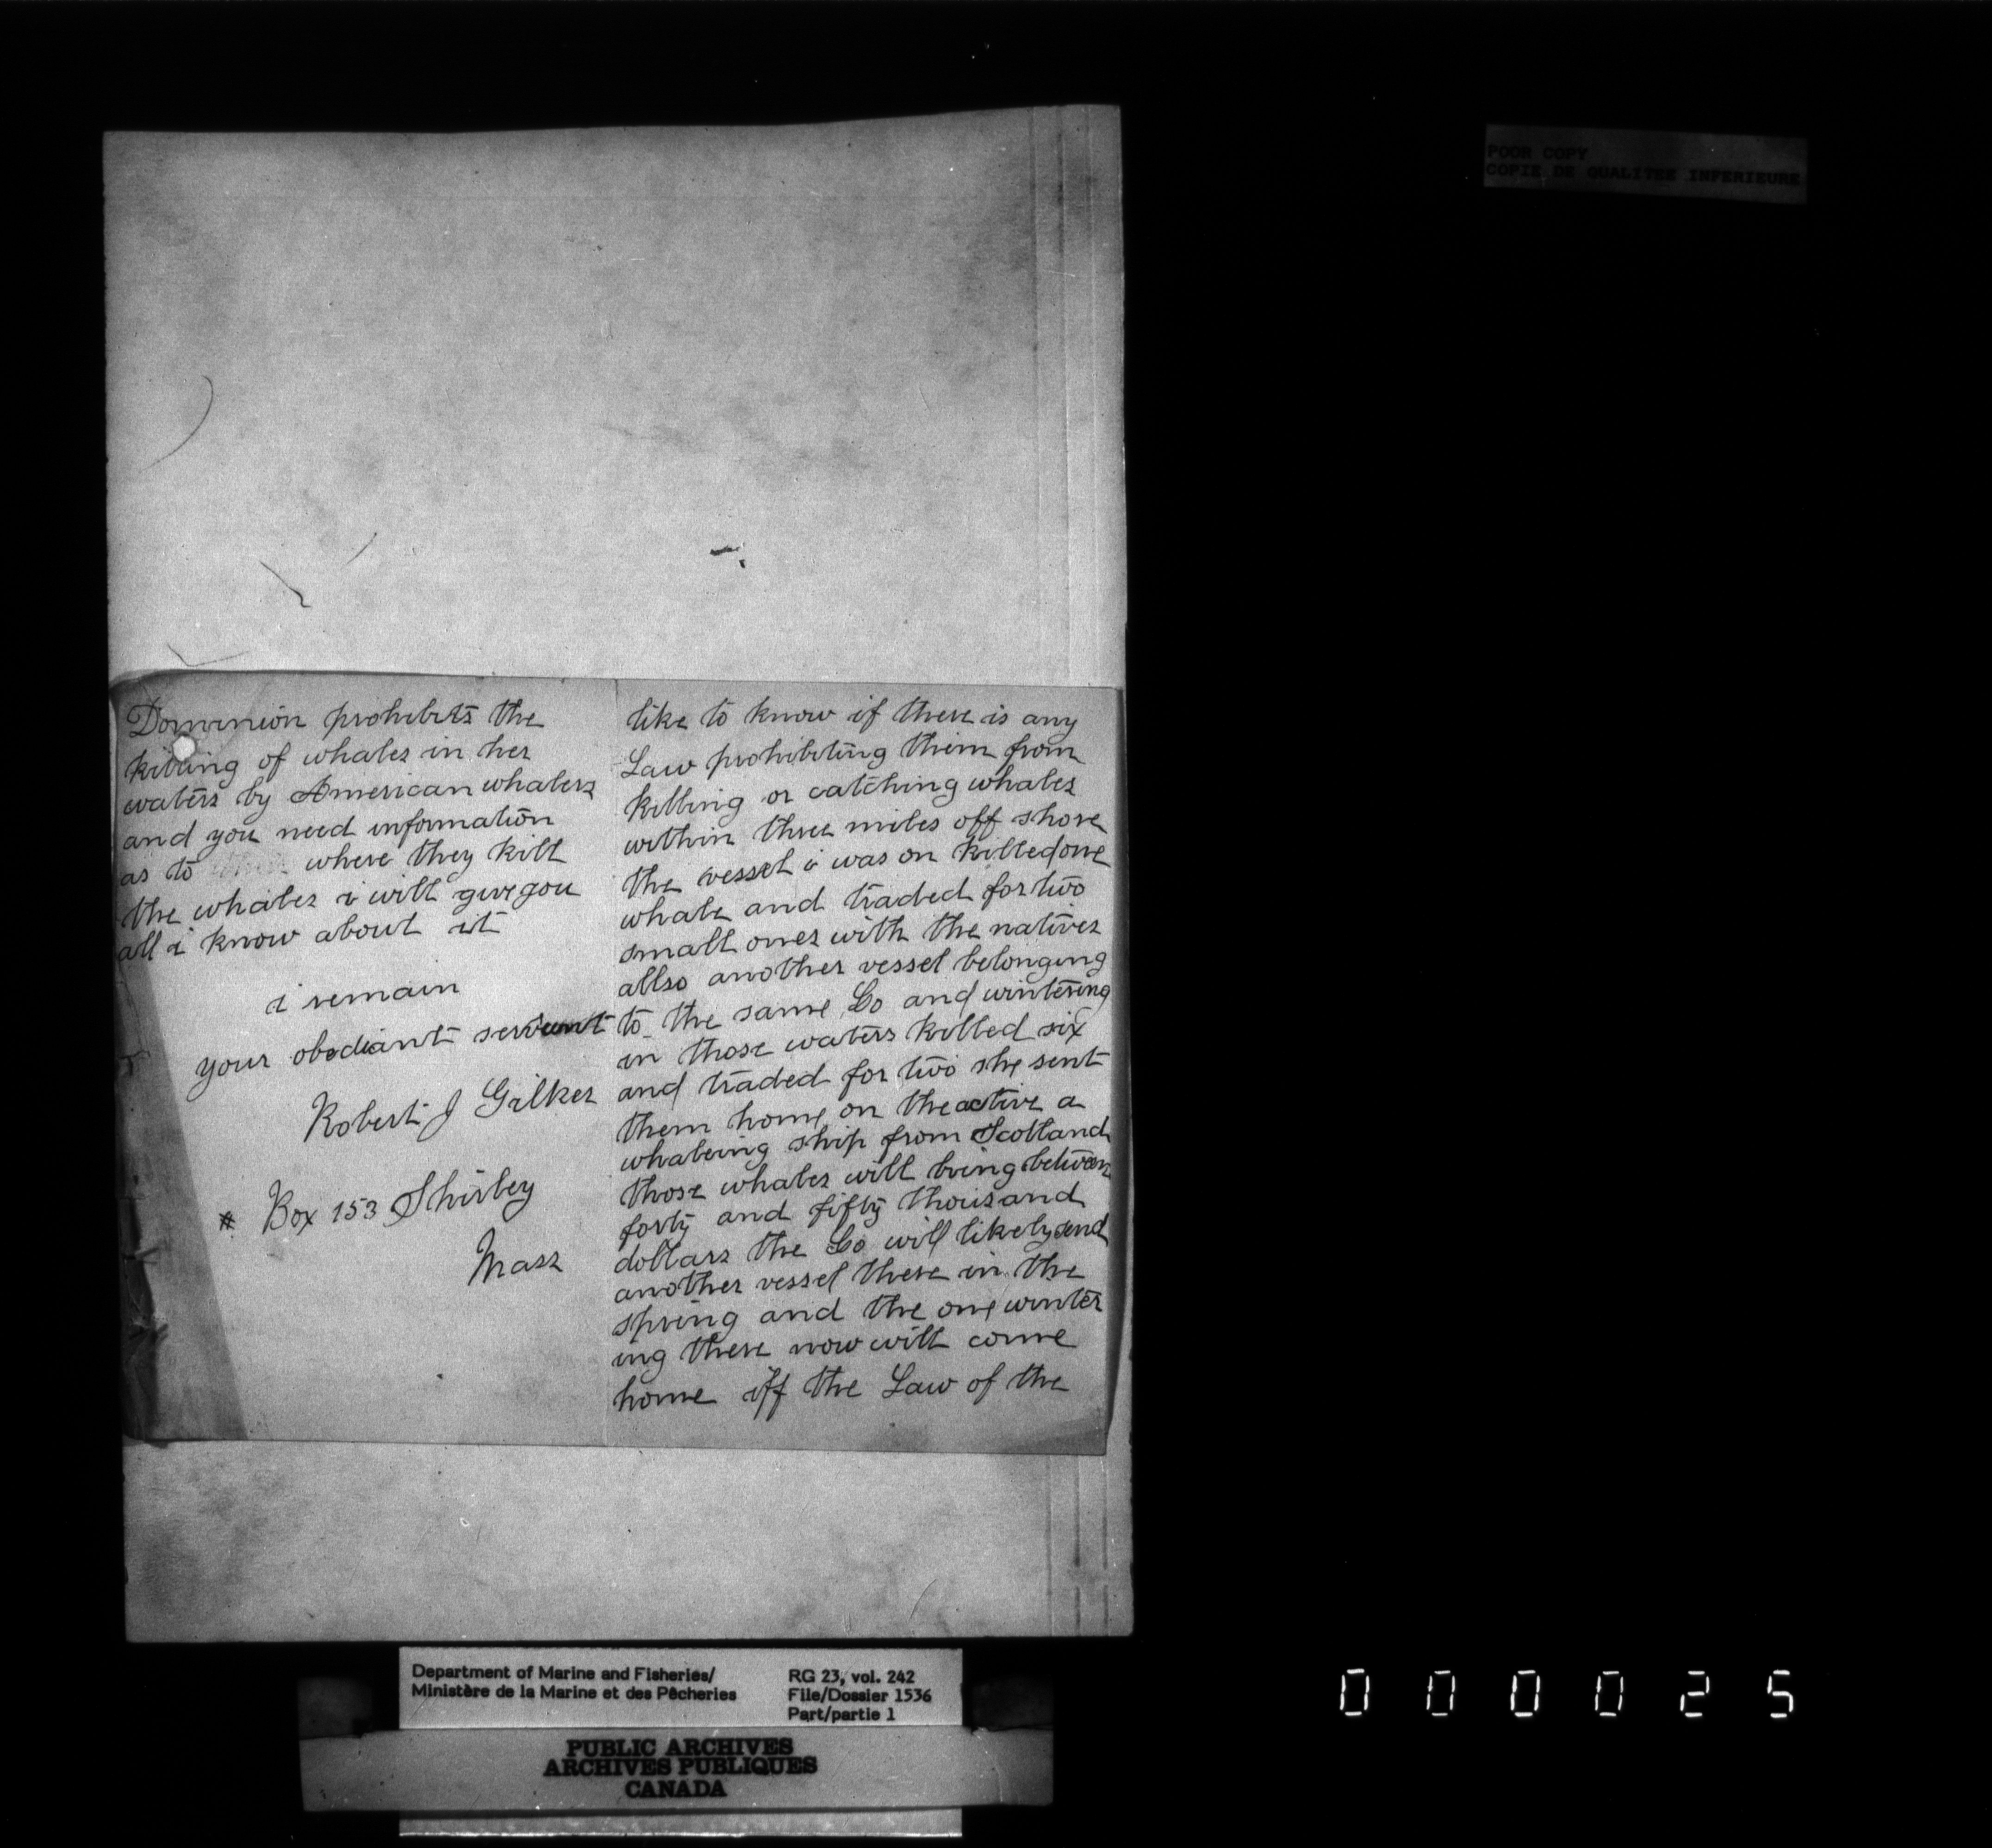 POOR COPY
COPIE DE QUALITEE INFERIEURE
like to know if there is any
Law prohibiting them from
killing or catching whales
within three miles off shore
the vessel i was on killed one
whale and traded for two
small ones with the natives
allso another vessel belonging
to the same Co and wintering
in those waters killed six
and traded for two she sent
them home on the active a
whaleing ship from Scotland
those whales will bring between
forty and fifty thousand
dollars the Co will likely send
another vessel there in the
spring and the one winter
ing there now will come
home iff the Law of the
Dominion prohibits the
killing of whales in her
waters by American whalers
and you need information
as to where they kill
the whales i will give you
all i know about it
i remain
your obediant servant
Robert J Gilkes
# Box 153 Shirley
Mass
Department of Marine and Fisheries/
Ministère de la Marine et des Pêcheries
RG 23, vol. 242
File/Dossier 1536
Part/partie 1
PUBLIC ARCHIVES
ARCHIVES PUBLIQUES
CANADA
000025